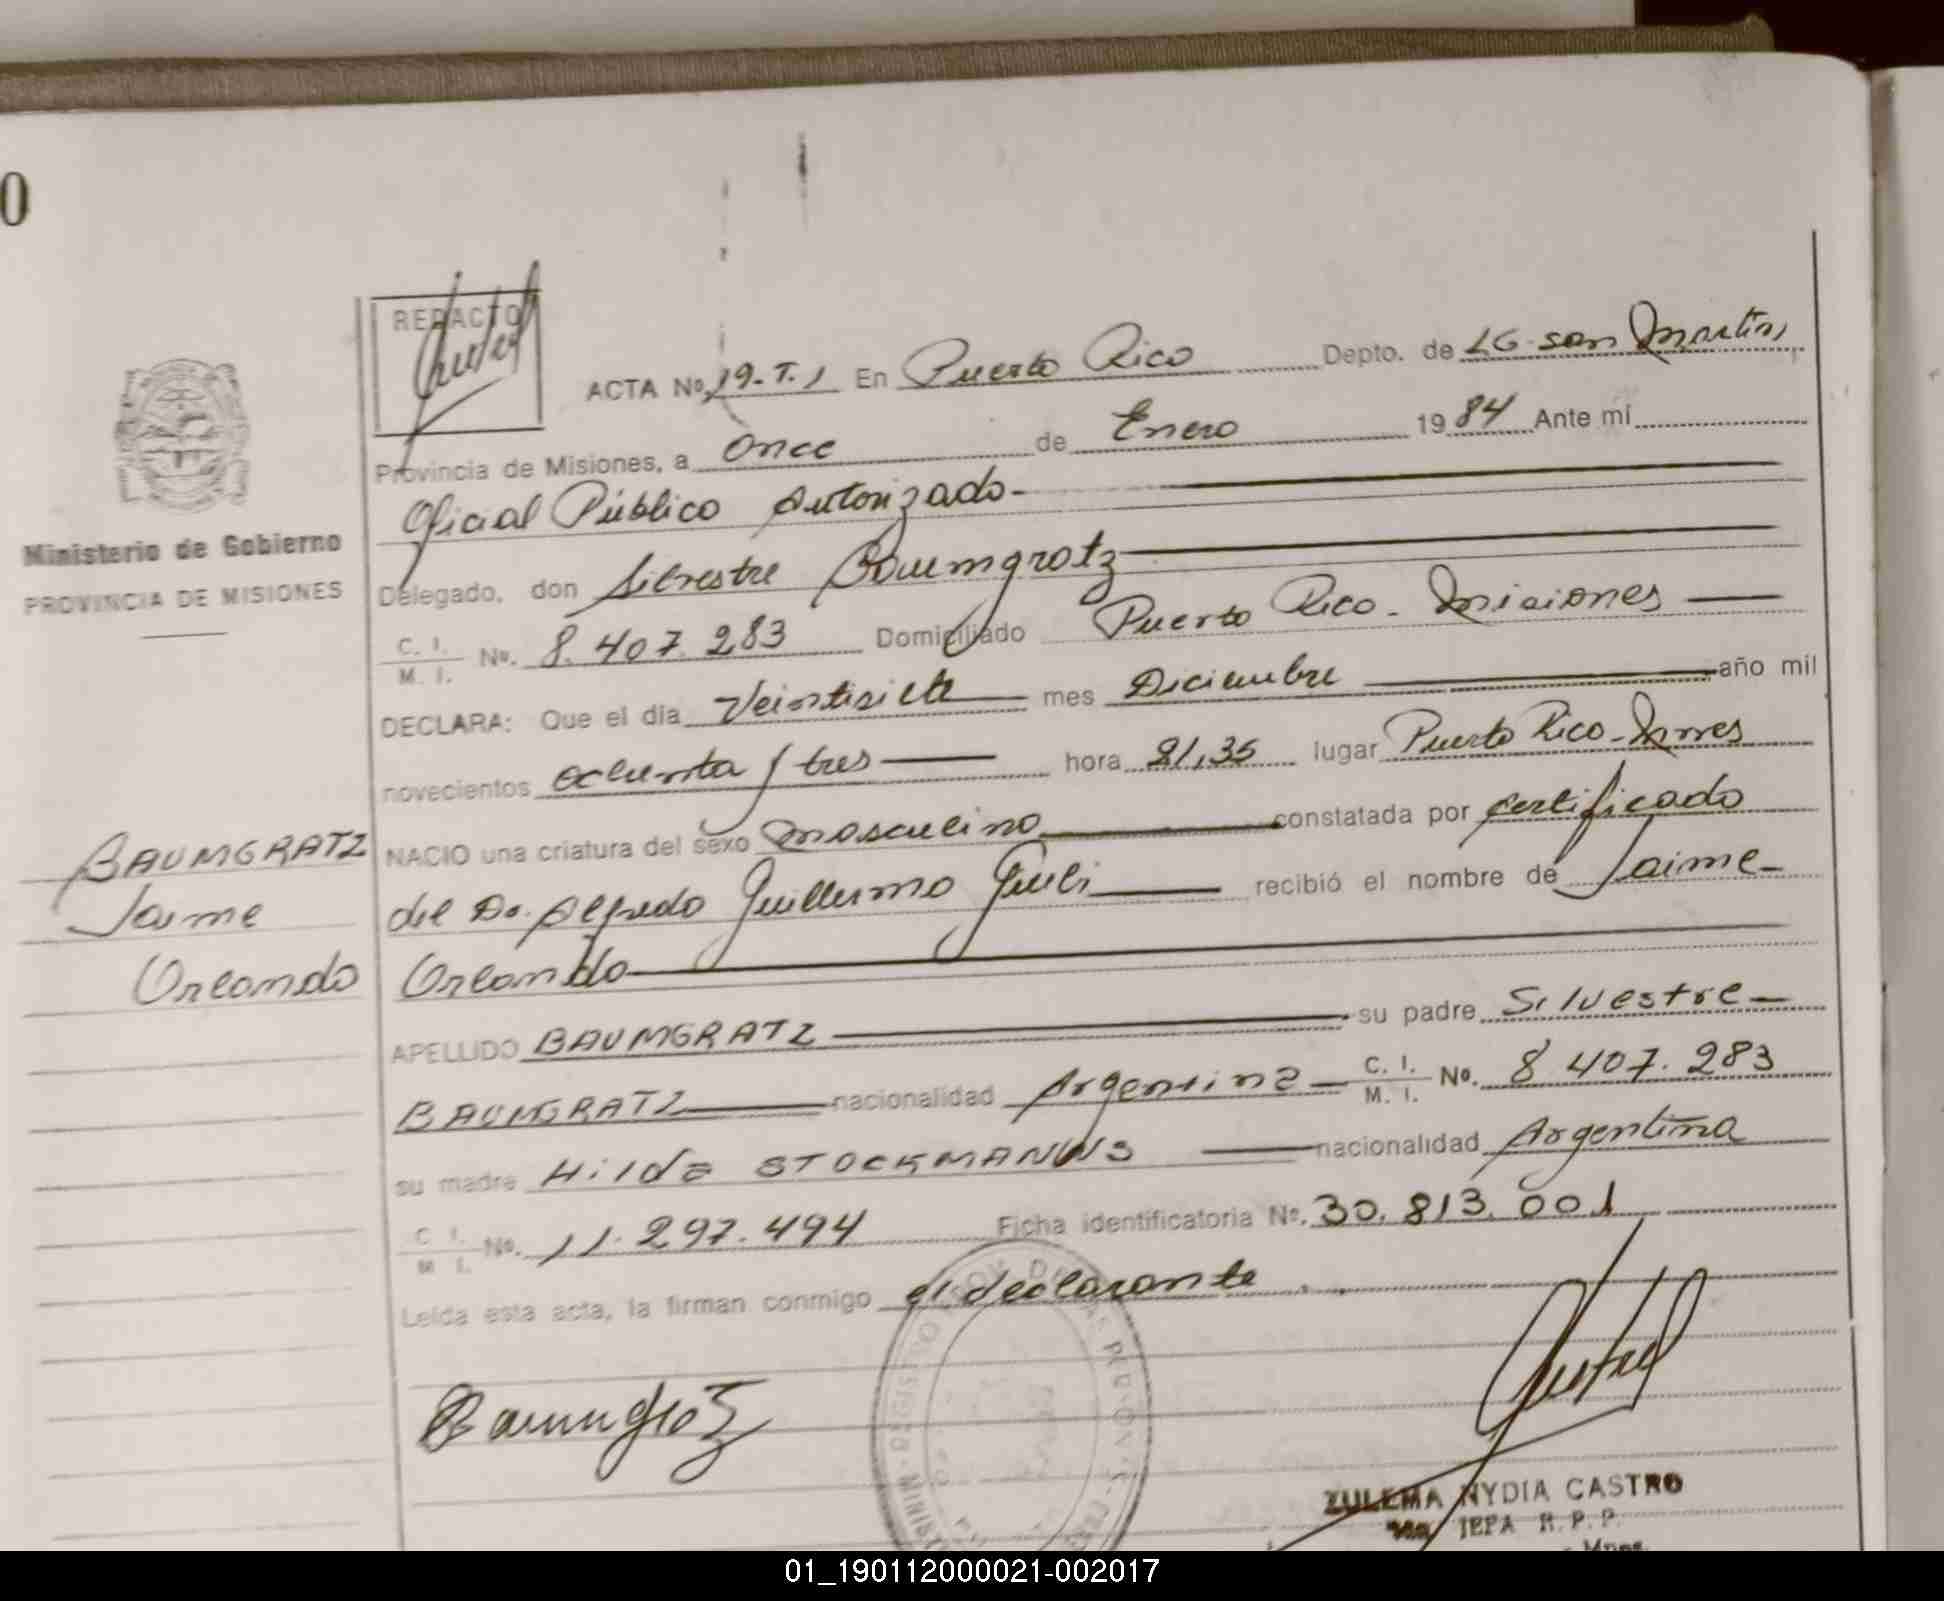 0
REDACTO
ACTA No. 19-T.1 En Puerto Rico Depto. de LG. san Martin,
Provincia de Misiones, a once de Enero 1984 Ante mí
Oficial Público Autorizado-
Delegado, don Silvestre Baumgratz
C. I. / M. I. No. 8.407.283 Domiciliado Puerto Rico - Misiones
DECLARA: Que el día Veintisiete mes Diciembre año mil
novecientos ochenta y tres hora 21,35 lugar Puerto Rico - Mnes
NACIO una criatura del sexo masculino constatada por certificado
del Dr. Alfredo Guillermo Giuli recibió el nombre de Jaime-
Orlando
APELLIDO BAUMGRATZ su padre Silvestre-
BAUMGRATZ nacionalidad Argentina C. I. / M. I. No. 8.407.283
su madre Hilda STOCKMANNS nacionalidad Argentina
C. I. / M. I. No. 11.297.494 Ficha identificatoria No. 30.813.001
Leída esta acta, la firman conmigo el declarante
Baumgratz
ZULEMA NYDIA CASTRO
JEFA R. P. P.
Mnes.
Ministerio de Gobierno
PROVINCIA DE MISIONES
BAUMGRATZ
Jaime
Orlando
01_190112000021-002017